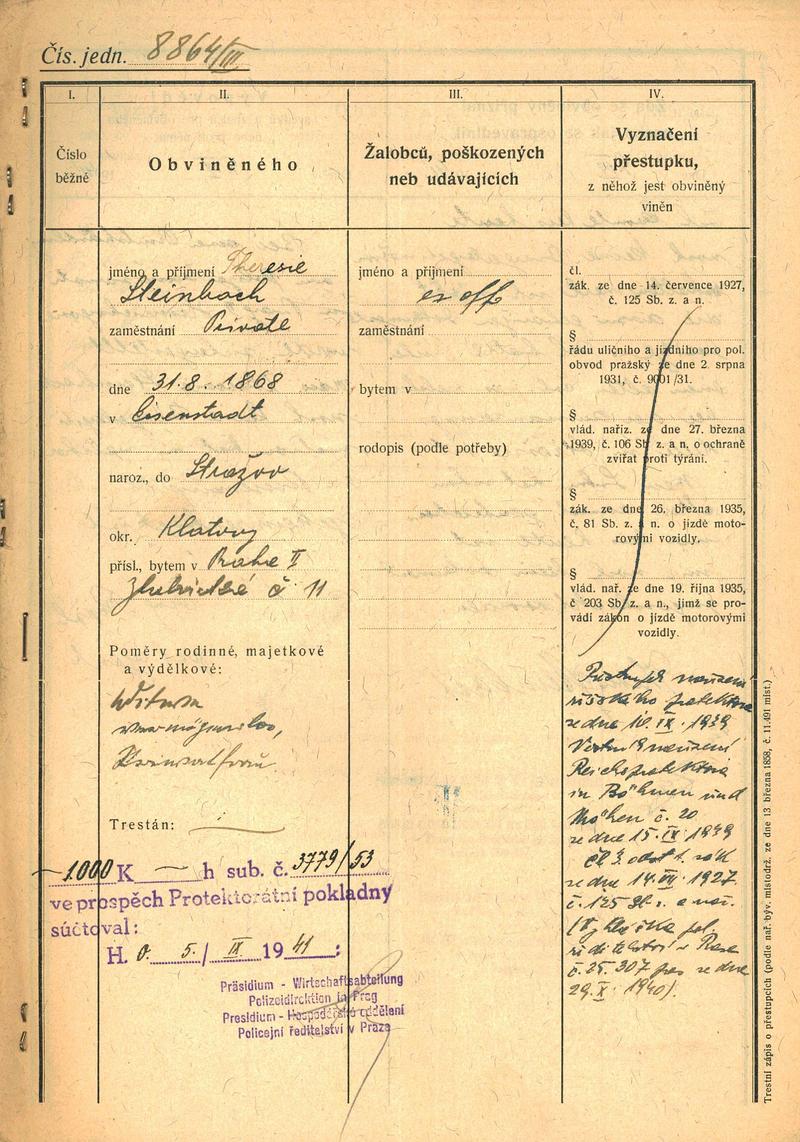 Čís. jedn. 8864/III
I.
Číslo
běžné
II.
Obviněného
III.
Žalobců, poškozených
neb udávajících
IV.
Vyznačení
přestupku,
z něhož jest obviněný
viněn
jméno a příjmení Theresie
Steinbach
zaměstnání Private
dne 31.8.1868
v Eisenstadt
naroz., do Stražov
okr. Klatovy
přísl., bytem v Praha II
č 11
Poměry rodinné, majetkové
a výdělkové:
Trestán:
1000 K — h sub. č. 3779/53
ve prospěch Protektorátní pokladny
súčtoval:
H. 0. 5./IX 1941:
Präsidium - Wirtschaftsabteilung
Polizeidirektion in Prag
Presidium - Hospodářské oddělení
Policejní ředitelství v Praze
jméno a příjmení
ex off
zaměstnání
bytem v
rodopis (podle potřeby)
čl.
zák. ze dne 14. července 1927,
č. 125 Sb. z. a n.
§
řádu uličního a jízdního pro pol.
obvod pražský ze dne 2. srpna
1931, č. 9001/31.
§
vlád. naříz. ze dne 27. března
1939, č. 106 Sb z. a n. o ochraně
zvířat proti týrání.
§
zák. ze dne 26. března 1935,
č. 81 Sb. z. a n. o jízdě moto-
rovými vozidly.
§
vlád. nař. ze dne 19. října 1935,
č 203 Sb. z. a n., jímž se pro-
vádí zákon o jízdě motorovými
vozidly.
Přestupek nařízení
říšského protektora
ze dne 10.IX.1939
nařízení
Reichsprotektora
in Böhmen und
Mähren č. 20
ze dne 15.IX 1939
čl 3. odst 1. zák
ze dne 14.VII.1927
č. 125 Sb. z. a nař.
(Vyhláška pol.
ředitelství v Praze
č. 25.307 pres ze dne
29.X.1940).
Trestní zápis o přestupcích (podle nař. býv. místodrž. ze dne 13. března 1858, č. 11.491 míst.)